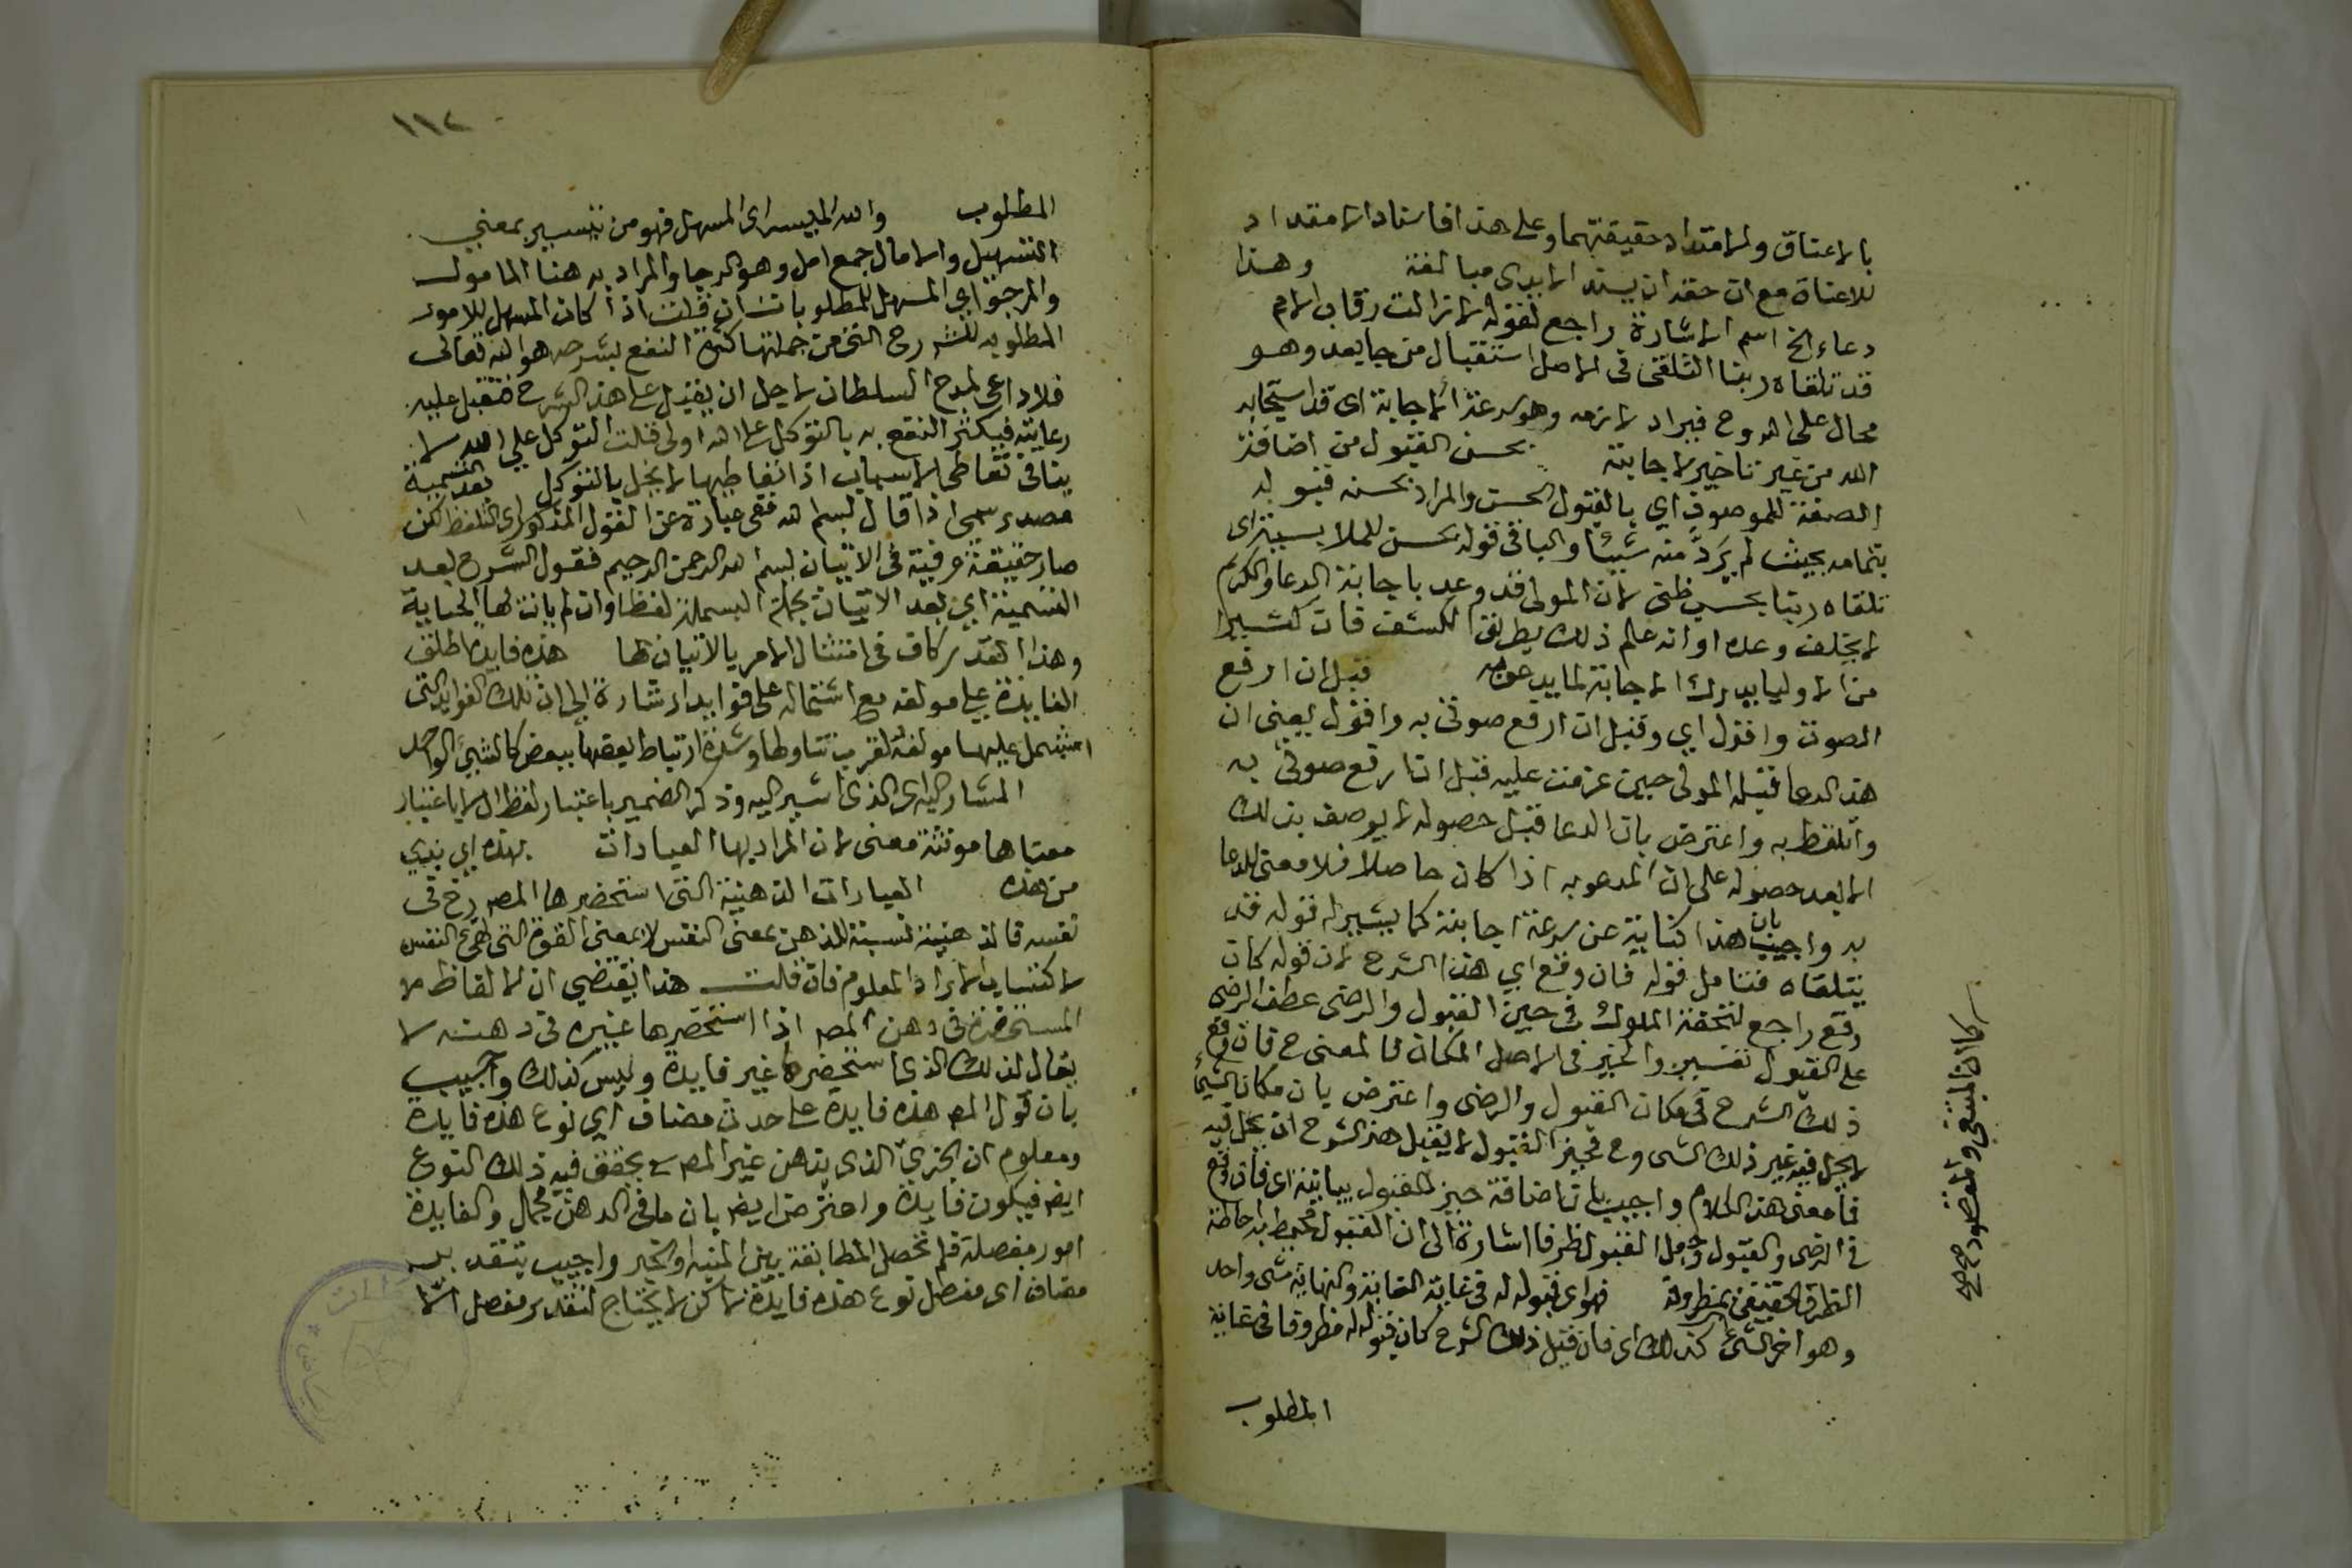 بالاعتاق والامتداد حقيقتهما وعلى هذا فاسناد الامتداد
للاعناة مع ان حقه ان يسند الايدى مبالغة وهذا
دعاء الخ اسم الاشارة راجع لقوله لا زالت رقاب الامم
قد تلقاه ربنا التلقى فى الاصل استقبال من جا يعد وهو
محال على الله وح فيراد لازمه وهو سرعة الاجابة اى قد استجابه
الله من غير تاخير لاجابته بحسن القبول من اضافة
الصفة للموصوف اي بالقبول الحسن والمراد بحسنه قبوله
بتمامه بحيث لم يَرُدَّ منه شيئا والبا فى قوله بحسن للملابسة اى
تلقاه ربنا بحسب ظنى لان المولى قد وعد باجابة الدعا والكريم
لا يخلف وعده او انه علم ذلك بطريق الكشف فان كثيرا
من الاوليا يدرك الاجابة لما يدعو به قبل ان ارفع
الصوت واقول اي وقبل ان ارفع صوتى به واقول يعنى ان
هذا الدعا قبله المولى حين عزمت عليه قبل ان ارفع صوتى به
واتلفظ به واعترض بان الدعا قبل حصوله لا يوصف بذلك
الا بعد حصوله على ان المدعو به اذا كان حاصلا فلا معنى للدعا
به واجيب بان هذا كناية عن سرعة اجابته كما يشير له قوله قد
يتلقاه فتامل قوله فان وقع اي هذا الشرح لان قوله كان
وقع راجع لتحفة الملوك فى حيز القبول والرضى عطف الرضى
على القبول تفسير والحيز فى الاصل المكان فالمعنى ح فان وقع
ذلك الشرح فى مكان القبول والرضى واعترض بان مكان الشئ
لا يحل فيه غير ذلك الشى وح فحيز القبول لا يقبل هذا الشرح ان يحل فيه
فما معنى هذا الكلام واجيب بان اضافة حيز للقبول بيانية اى فان وقع
فى الرضى والقبول وجعل القبول ظرفا اشارة الى ان القبول محيط به احاطة
الظرف الحقيقى بمظروفه فهو اى قبوله له فى غاية الغاية والنهاية شى واحد
وهو اخر الشئ كذلك اى فان قبل ذلك الشرح كان قبوله له مظروفا فى غاية
المطلوب
كان المبتغى والمقصود صح صح
١١٢
المطلوب والله الميسر اى المسهل فهو من تيسير بمعنى
التسهيل والامال جمع امل وهو الرجا والمراد به هنا المامول
والمرجو اي المسهل للمطلوبات فان قلت اذا كان المسهل للامور
المطلوبه للشرح التى من جملتها كثرة النفع بشرحه هو الله تعالى
فلا داعى لمدح السلطان لاجل ان يقبل على هذا الشرح فتقبل عليه
رعايته فيكثر النفع به بالتوكل على الله اولى قلت التوكل على الله لا
ينافى تعاطى الاسباب اذ اتعاطيها لا يخل بالتوكل بعد التسمية
مصدر سمى اذا قال بسم الله فهى عبارة عن القول المذكور اى التلفظ لكن
صار حقيقة عرفية فى الاتيان بسم الله الرحمن الرحيم فقول الشرح بعد
التسمية اي بعد الاتيان بجملة البسملة لفظا وان لم يات لها الكتابة
وهذا القدر كاف فى امتثال الامر بالاتيان بها هذه فايدة اطلق
الفايدة على مولفه مع اشتماله على فوايد اشارة الى ان تلك الفوايد التى
اشتمل عليها مولفه لقرب تناولها وشدة ارتباط بعضها ببعض كالشئ الواحد
المشار اليه اى الذى اشير اليه وذكر الضمير باعتبار لفظ ال لا باعتبار
معناها مونثة معنى لان المراد بها العبارات بهذه اي بذى
من هذه العبارات الذهنية التى استحضرها المص رح فى
نفسه فالذهنية نسبة للذهن بمعنى النفس لا بمعنى القوة التى تهيئ النفس
لاكتساب الاراد المعلوم فان قلت هذا يقتضى ان الالفاظ
المستحضرة فى ذهن المص اذا استحضرها غيره فى ذهنه لا
يقال لذلك الذى استحضره غير فايدة وليس كذلك واجيب
بان قول المص هذه فايدة على حذف مضاف اي نوع هذه فايدة
ومعلوم ان الجزئ الذى بذهن غير المص يحقق فيه ذلك النوع
ايض فيكون فايدة واعترض ايض بان ما فى الذهن مجمل والفايدة
امور مفصلة فلم تحصل المطابقة بين المبتدا والخبر واجيب بتقدير
مضاف اى مفصل نوع هذه فايدة لكن لا يحتاج لتقدير مفصل الا